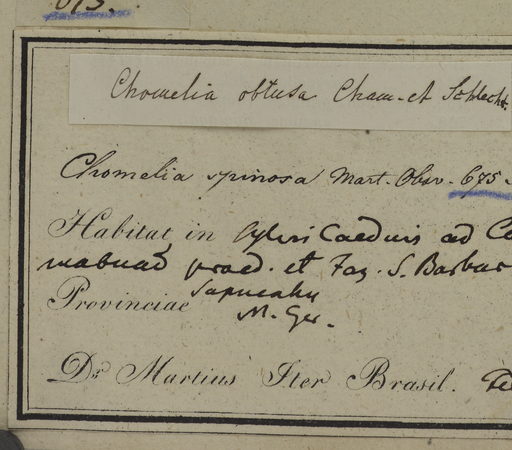 675.
Chomelia obtusa Cham. et Schlecht.
Chomelia spinosa Mart. Obsv. 675.
Habitat in sylvis Caeduis ad
praed. et Faz. S. Barbar
Provinciae Sapucahy
M. Ger.
Dr. Martius Iter Brasil.